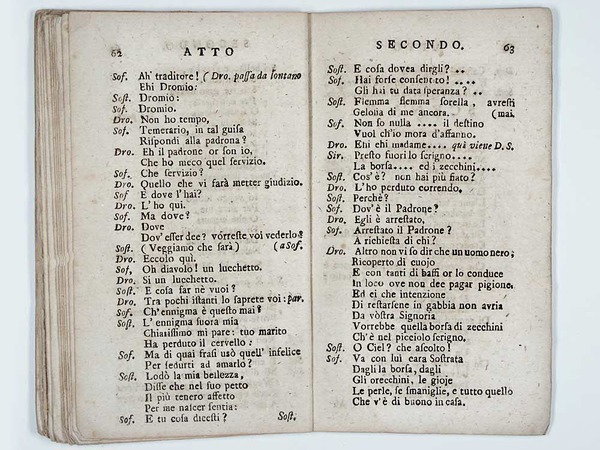 62 ATTO
Sof. Ah' traditore! (Dro. paſſa da lontano
Ehi Dromio:
Soſt. Dromio:
Sof. Dromio.
Dro. Non ho tempo,
Sof. Temerario, in tal guiſa
Riſpondi alla padrona?
Dro. Eh il padrone or ſon io,
Che ho meco quel ſervizio.
Sof. Che ſervizio?
Dro. Quello che vi farà metter giudizio.
Sof E dove l'hai?
Dro. L'ho qui.
Sof. Ma dove?
Dro. Dove
Dov'eſſer dee? vorreſte voi vederlo?
Soſt. (Veggiamo che farà) (a Sof.
Dro. Eccolo qui.
Sof, Oh diavolo! un lucchetto.
Dro. Si un lucchetto.
Soſt. E coſa far nè vuoi?
Dro. Tra pochi iſtanti lo ſaprete voi: par.
Sof. Ch'ennigma è queſto mai?
Soſt. L'ennigma ſuora mia
Chiariſſimo mi pare: tuo marito
Ha perduto il cervello:
Sof. Ma di quai fraſi usò quell' infelice
Per ſedurti ad amarlo?
Soſt. Lodò la mia bellezza,
Diſſe che nel ſuo petto
Il più tenero affetto
Per me naſcer ſentia:
Sof. E tu coſa diceſti? Soſt.
SECONDO. 63
Soſt. E coſa dovea dirgli? ..
Sof. Hai forſe conſentito! ....
Gli hai tu data ſperanza? ..
Soſt. Flemma flemma ſorella, avreſti
Geloſia di me ancora. (mai.
Sof. Non ſo nulla .... il deſtino
Vuol ch'io mora d'affanno.
Dro. Ehi ehi madame.... quì viene D. S.
Sir. Preſto fuori lo ſcrigno....
La borſa.... ed i zecchini....
Soſt. Cos'è? non hai più fiato?
Dro. L'ho perduto correndo.
Soſt. Perchè?
Sof. Dov'è il Padrone?
Dro. Egli è arreſtato,
Sof. Arreſtato il Padrone?
A richieſta di chi?
Dro. Altro non vi ſo dir che un uomo nero;
Ricoperto di cuojo
E con tanti di baffi or lo conduce
In loco ove non dee pagar pigione.
Ed ei che intenzione
Di reſtarſene in gabbia non avria
Da vòſtra Signoria
Vorrebbe quella borſa di zecchini
Ch'è nel picciolo ſcrigno.
Soſt. O Ciel? che aſcolto!
Sof. Va con lui cara Soſtrata
Dagli la borſa, dagli
Gli orecchini, le gioje
Le perle, ſe ſmaniglie, e tutto quello
Che v'è di buono in caſa.